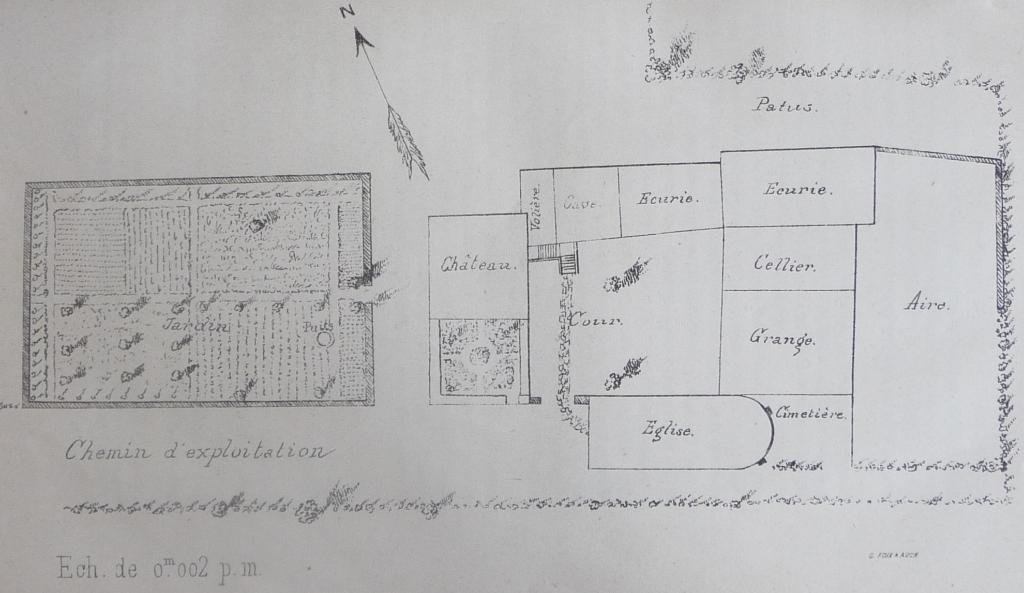 N
Patus.
Volière.
Cave.
Ecurie.
Ecurie.
Château.
Cellier.
Jardin
Puits
Cour.
Grange.
Aire.
Eglise.
Cimetière.
Chemin d'exploitation
Ech. de 0m002 p.m.
G. FOIX A AUCH